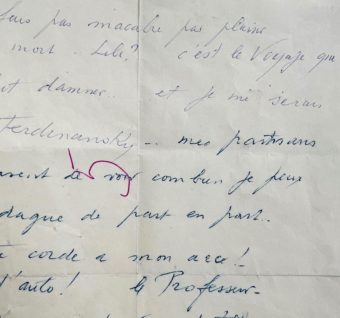 pas macabre pas pleine
mort .. Lili? c'est le Voyage qui
damner.. et je me serais
Ferdinansky.. mes partisans
de vous combien je peux
dague de part en part..
corde a mon arc!_
d'auto! le Professeur_